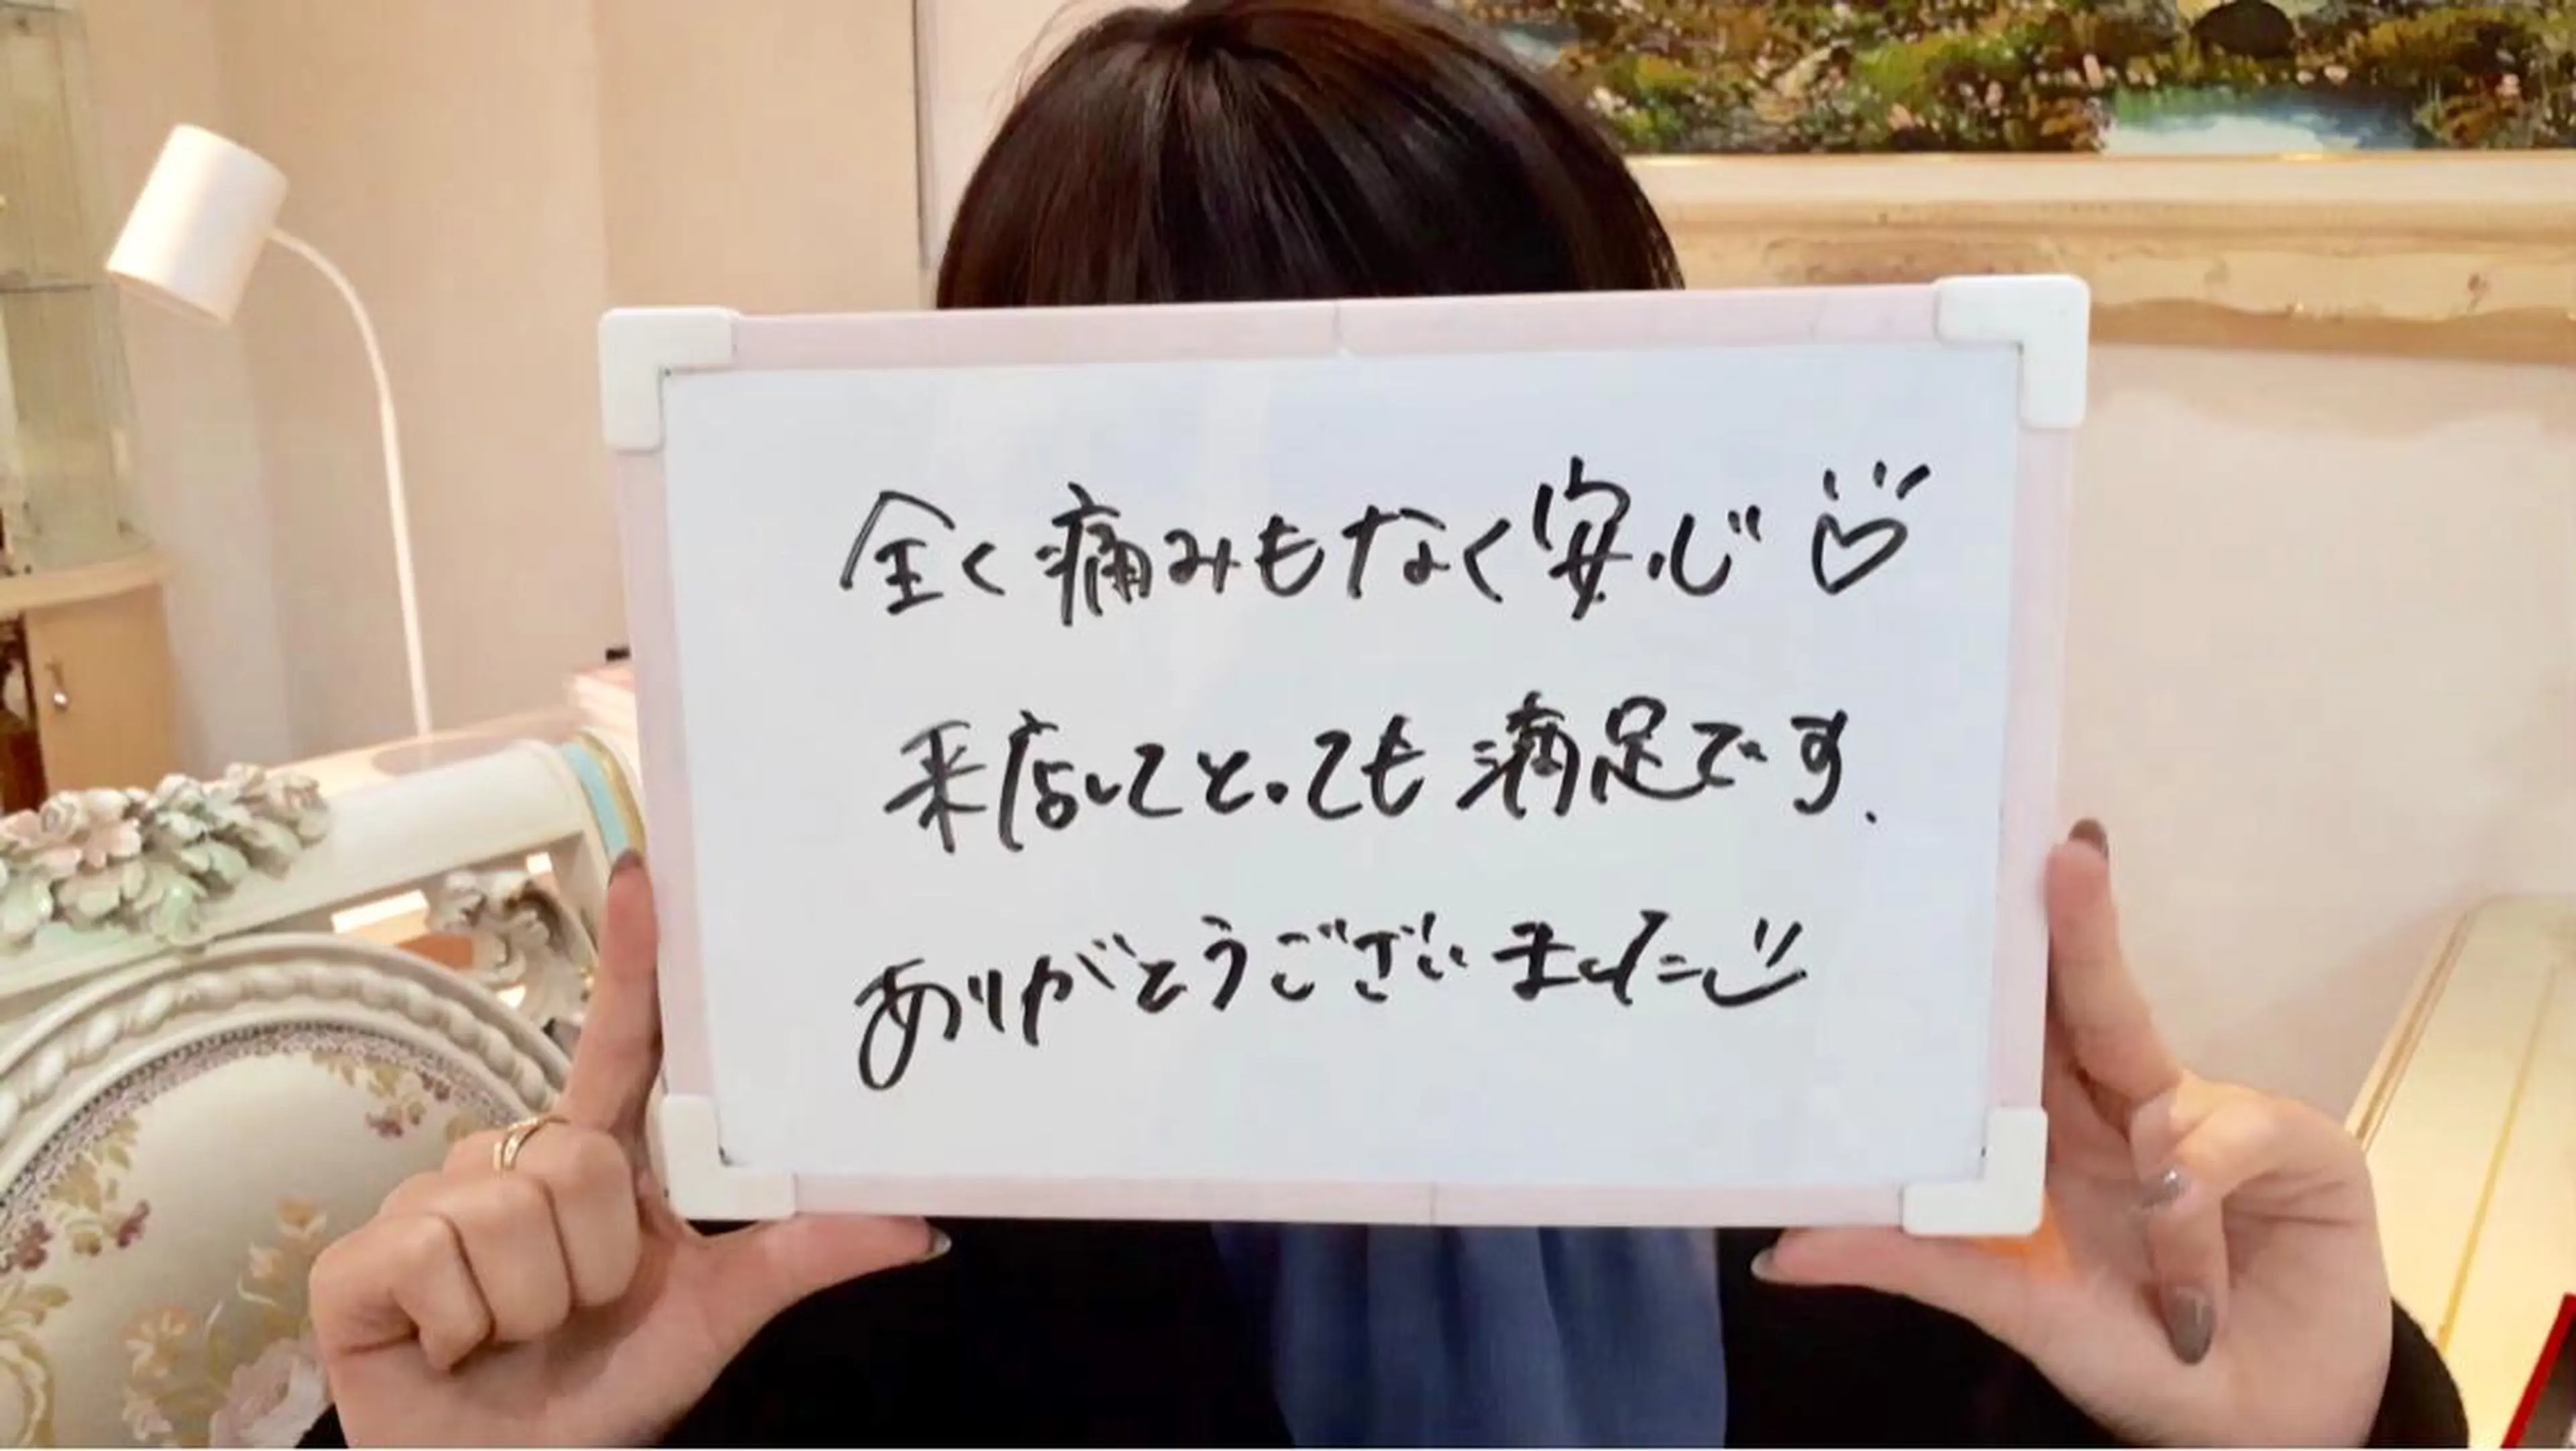 全く痛みもなく安心♡
来店してとっても満足です.
ありがとうございました